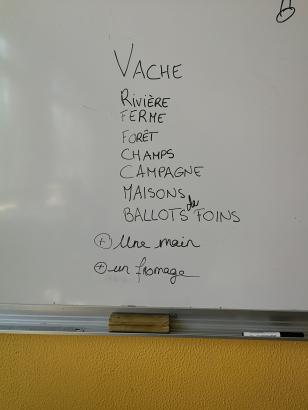 VACHE
RIVIÈRE
FERME
FORÊT
CHAMPS
CAMPAGNE
MAISONS
BALLOTS de FOINS
+ Une main
+ un fromage